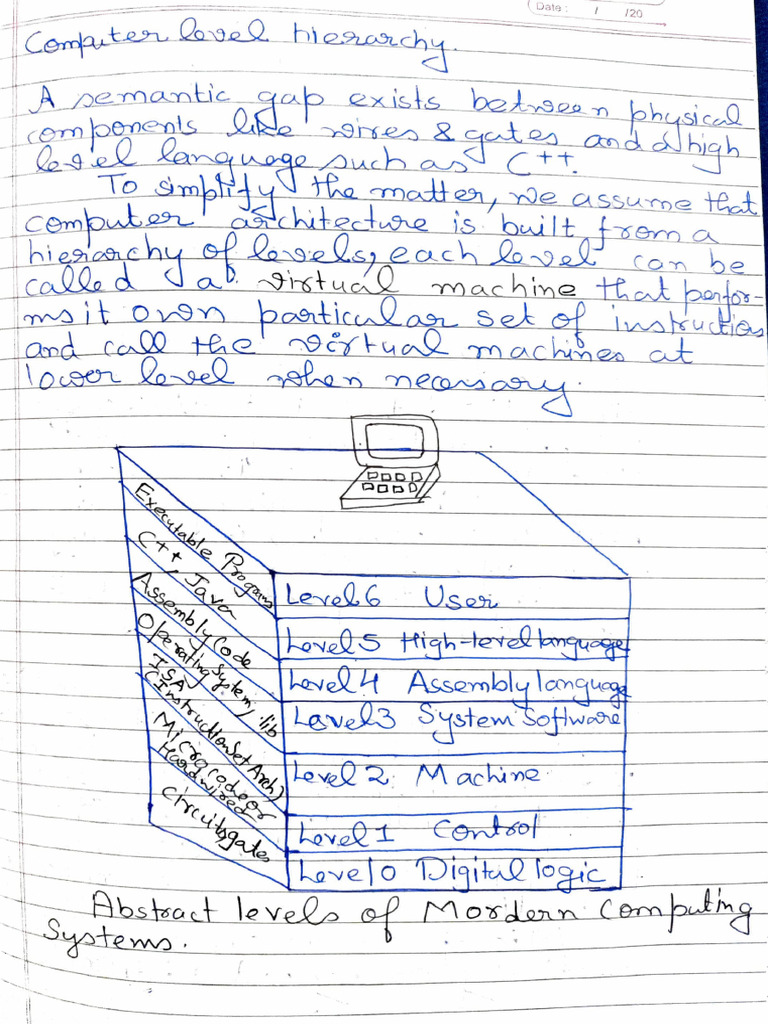 Date : / /20
Computer level hierarchy.
A semantic gap exists between physical
components like wires & gates and a high
level language such as C++.
To simplify the matter, we assume that
computer architecture is built from a
hierarchy of levels, each level can be
called a virtual machine that perfor-
ms it own particular set of instruction
and call the virtual machines at
lower level when necessary.
Executable Programs
Level 6 User
C++, Java
Level 5 High-level language
Assembly Code
Level 4 Assembly language
Operating System, lib
Level 3 System Software
ISA
(Instruction Set Arch)
Level 2 Machine
Microcode or
Hardwired
Level 1 Control
Circuits gates
Level 0 Digital logic
Abstract levels of Mordern Computing
Systems.